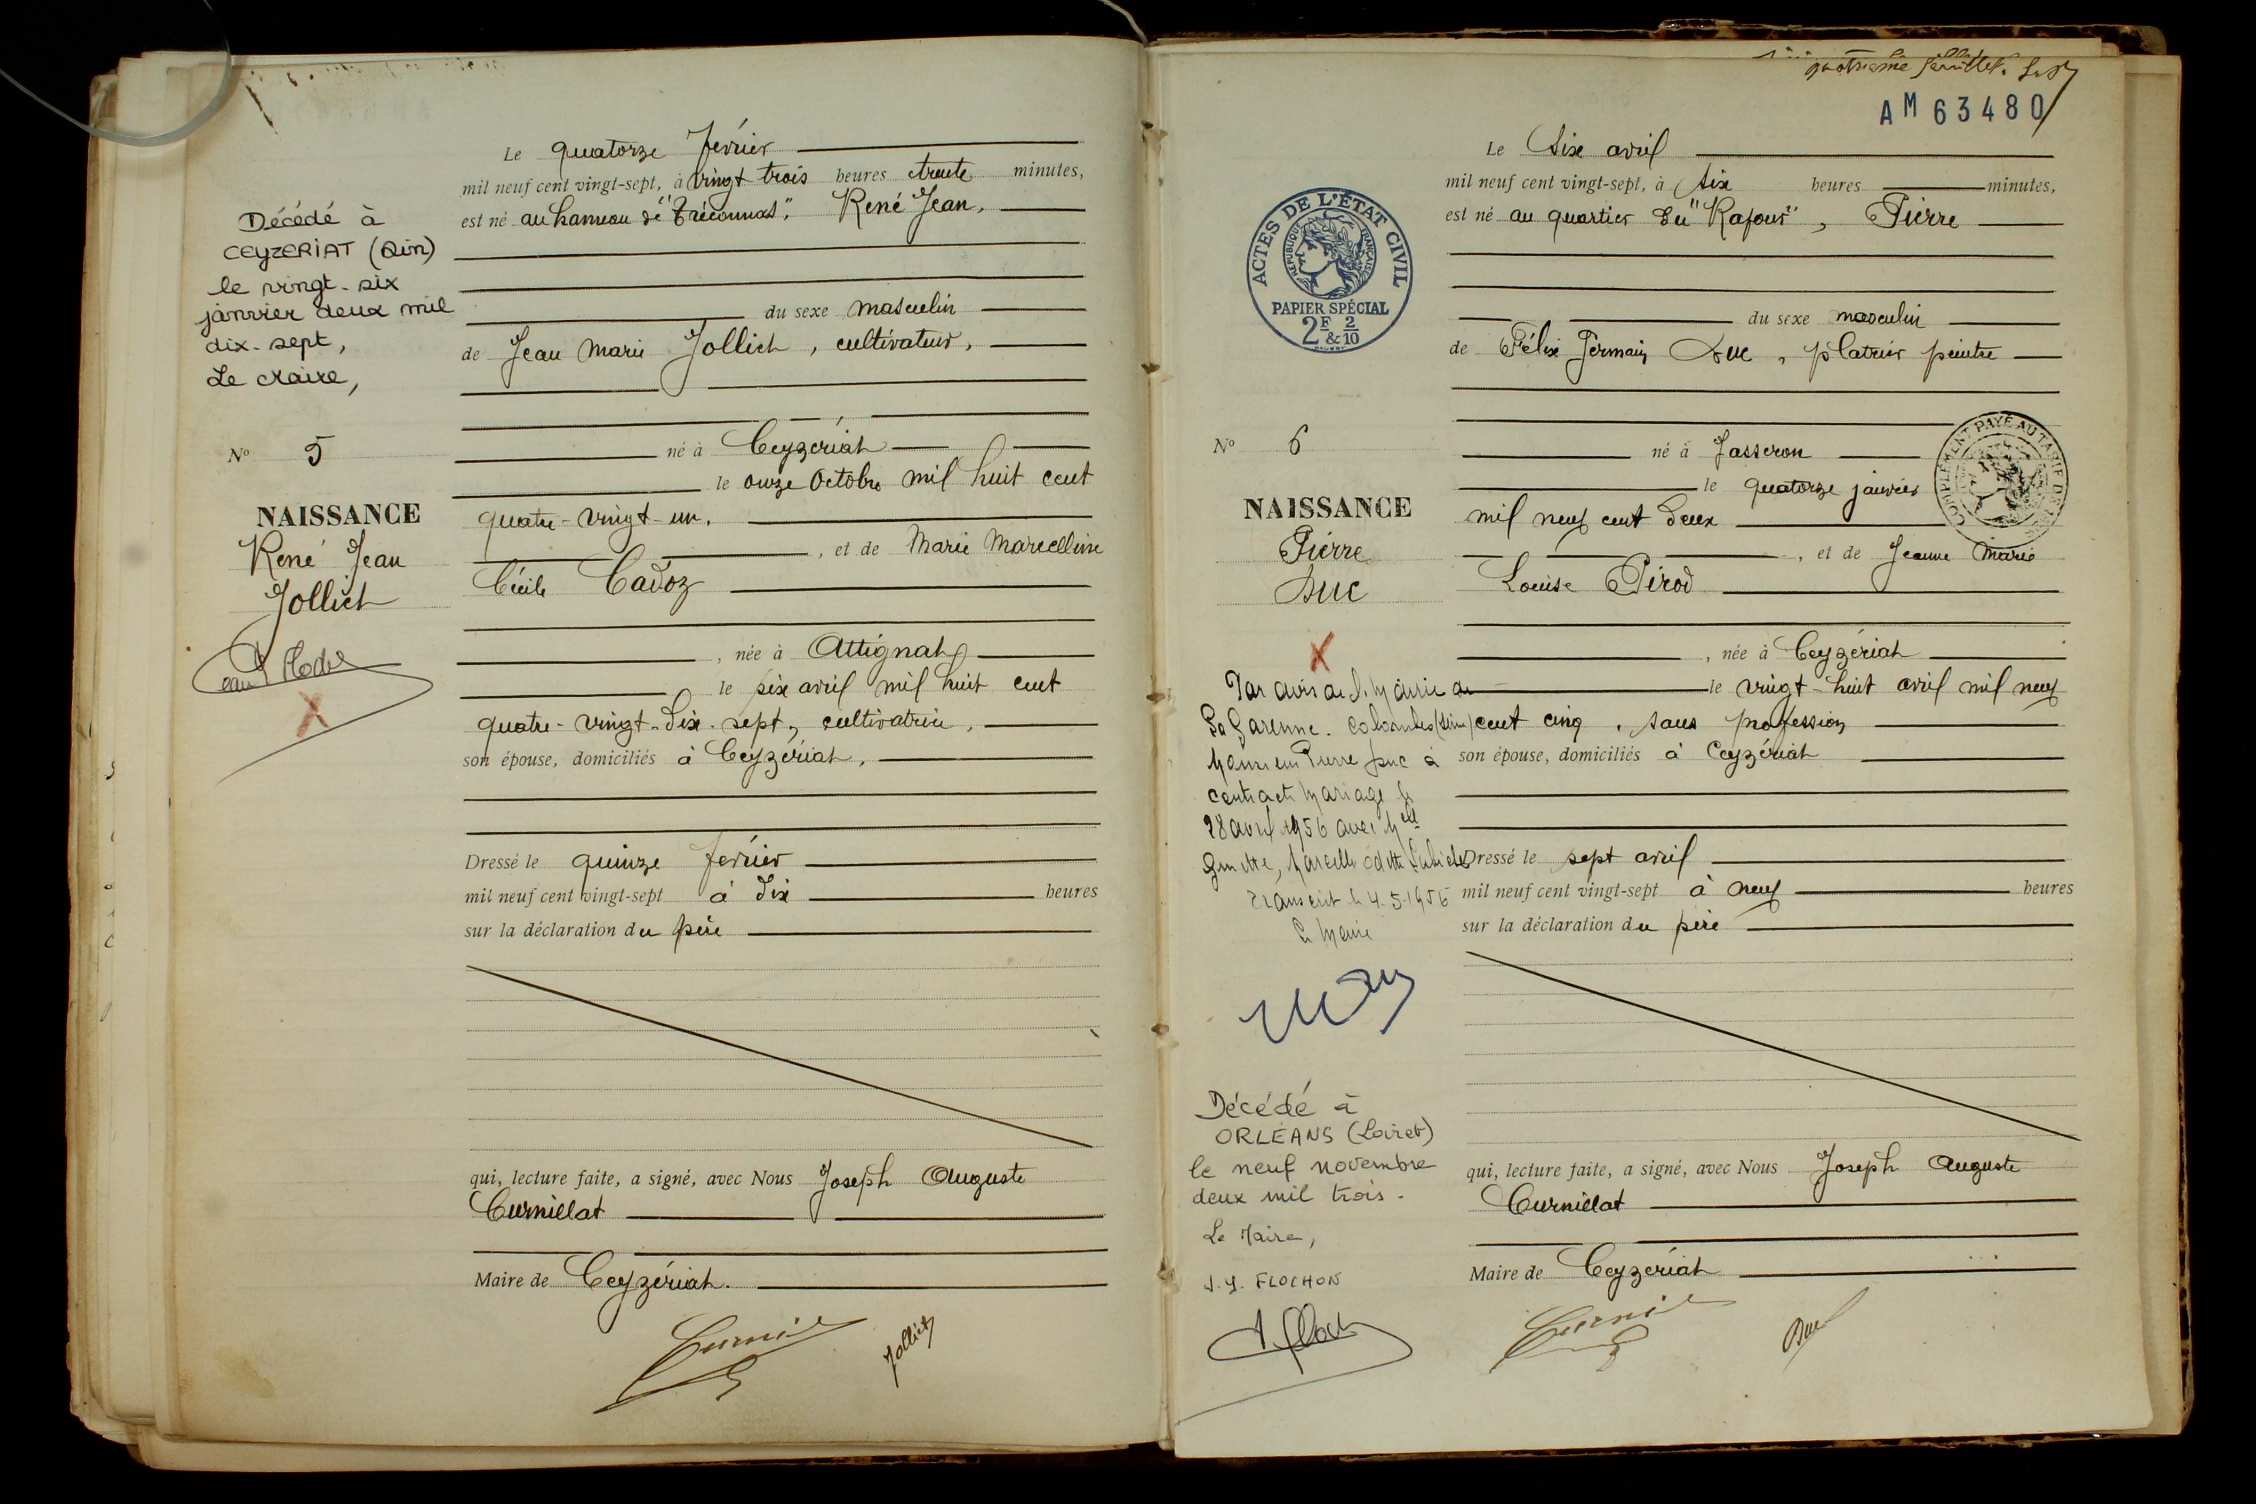 Le quatorze février
mil neuf cent vingt-sept, à vingt trois heures trente minutes,
est né au hameau de "Tréconnas". René Jean,
du sexe masculin
de Jean Marie Jolliet, cultivateur,
né à Ceyzériat
le onze Octobre mil huit cent
quatre-vingt-un.
, et de Marie Marcelline
Cécile Cadoz
, née à Attignat
le six avril mil huit cent
quatre-vingt-dix-sept, cultivatrice,
son épouse, domiciliés à Ceyzériat.
Dressé le quinze février
mil neuf cent vingt-sept à dix heures
sur la déclaration du père
qui, lecture faite, a signé, avec Nous Joseph Auguste
Curnillat
Maire de Ceyzériat.
Jolliet
Décédé à
CEYZERIAT (Ain)
le vingt-six
janvier deux mil
dix-sept,
Le Maire,
No 5
NAISSANCE
René Jean
Jolliet
quatrième feuillet.
AM 63480
Le Six avril
mil neuf cent vingt-sept, à six heures minutes,
est né au quartier du "Rafour", Pierre
du sexe masculin
de Félix Germain Duc, platrier peintre
né à Jasseron
le quatorze janvier
mil neuf cent deux
, et de Jeanne Marie
Louise Pérod
, née à Ceyzériat
le vingt-huit avril mil neuf
cent cinq, sans profession
son épouse, domiciliés à Ceyzériat
Dressé le sept avril
mil neuf cent vingt-sept à neuf heures
sur la déclaration du père
qui, lecture faite, a signé, avec Nous Joseph Auguste
Curnillat
Maire de Ceyzériat
Duc
ACTES DE L'ÉTAT CIVIL
RÉPUBLIQUE FRANÇAISE
PAPIER SPÉCIAL
2F & 2/10
COMPLÉMENT PAYÉ AU TARIF DE
No 6
NAISSANCE
Pierre
Duc
Par avis de la Mairie de
La Garenne-Colombes (Seine)
Monsieur Pierre Duc a
contracté mariage le
28 avril 1956 avec Melle
Ginette, Marcelle Odette
Transcrit le 4-5-1956
Le Maire
Décédé à
ORLÉANS (Loiret)
le neuf novembre
deux mil trois.
Le Maire,
J.Y. FLOCHON